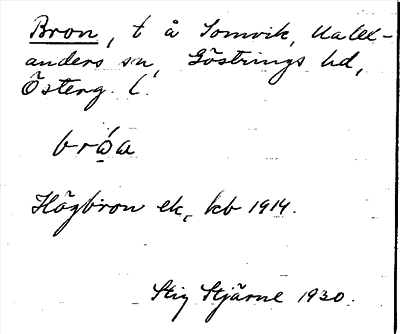 Bron, t å Sonvik, Kalle-
anders sn, Göstrings hd,
Österg. l.
bróa
Högbron ek, kb 1914.
Stig Stjärne 1930.